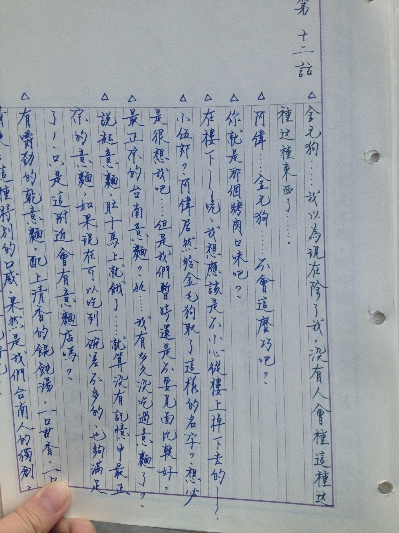 第十二話
△金元狗……我以為現在除了我，沒有人會種這種
種這種東西了……。
△阿偉……金元狗……不會這麼巧吧？
△你就是那個烤肉口味吧？
△在樓下！～唉，我想應該是不小心從樓上掉下去的！～
△小伍郎？阿偉居然給金元狗取了這樣的名字？想必
是很想我吧…但是我們暫時還是不要見面比較好。
△最正宗的台南意麵？欸…我有多久沒吃過意麵了？
說起意麵肚子馬上就餓了……就算沒有記憶中最正
宗的意麵，如果現在可以吃到碗差不多的，也夠滿足
了！只是這附近會有意麵店嗎？
△有嚼勁的乾意麵配上清香的餛飩湯，一口
這種特別的口感果然是我們台南人的獨創